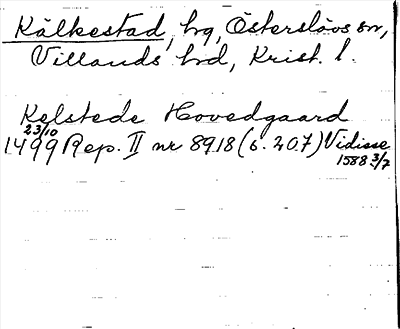 Kälkestad, hg, Österslövs sn,
Villands hd, Krist. l.
Kelstede Hovedgaard
23/10
1499 Rep. II nr 8918 (s. 207) Vidisse
1588 3/7